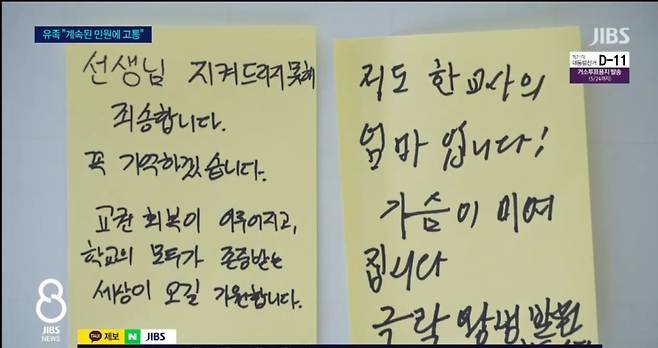 유족 "계속된 민원에 고통"
JIBS
제21대
대통령선거 D-11
거소투표용지 발송
(5/24까지)
선생님 지켜드리지 못해
죄송합니다.
꼭 기억하겠습니다.
교권 회복이 이루어지고,
학교의 모두가 존중받는
세상이 오길 기원합니다.
저도 한 교사의
엄마 입니다!
가슴이 미여
집니다
극락왕생 발원
8
JIBS
NEWS
TALK 제보 N JIBS